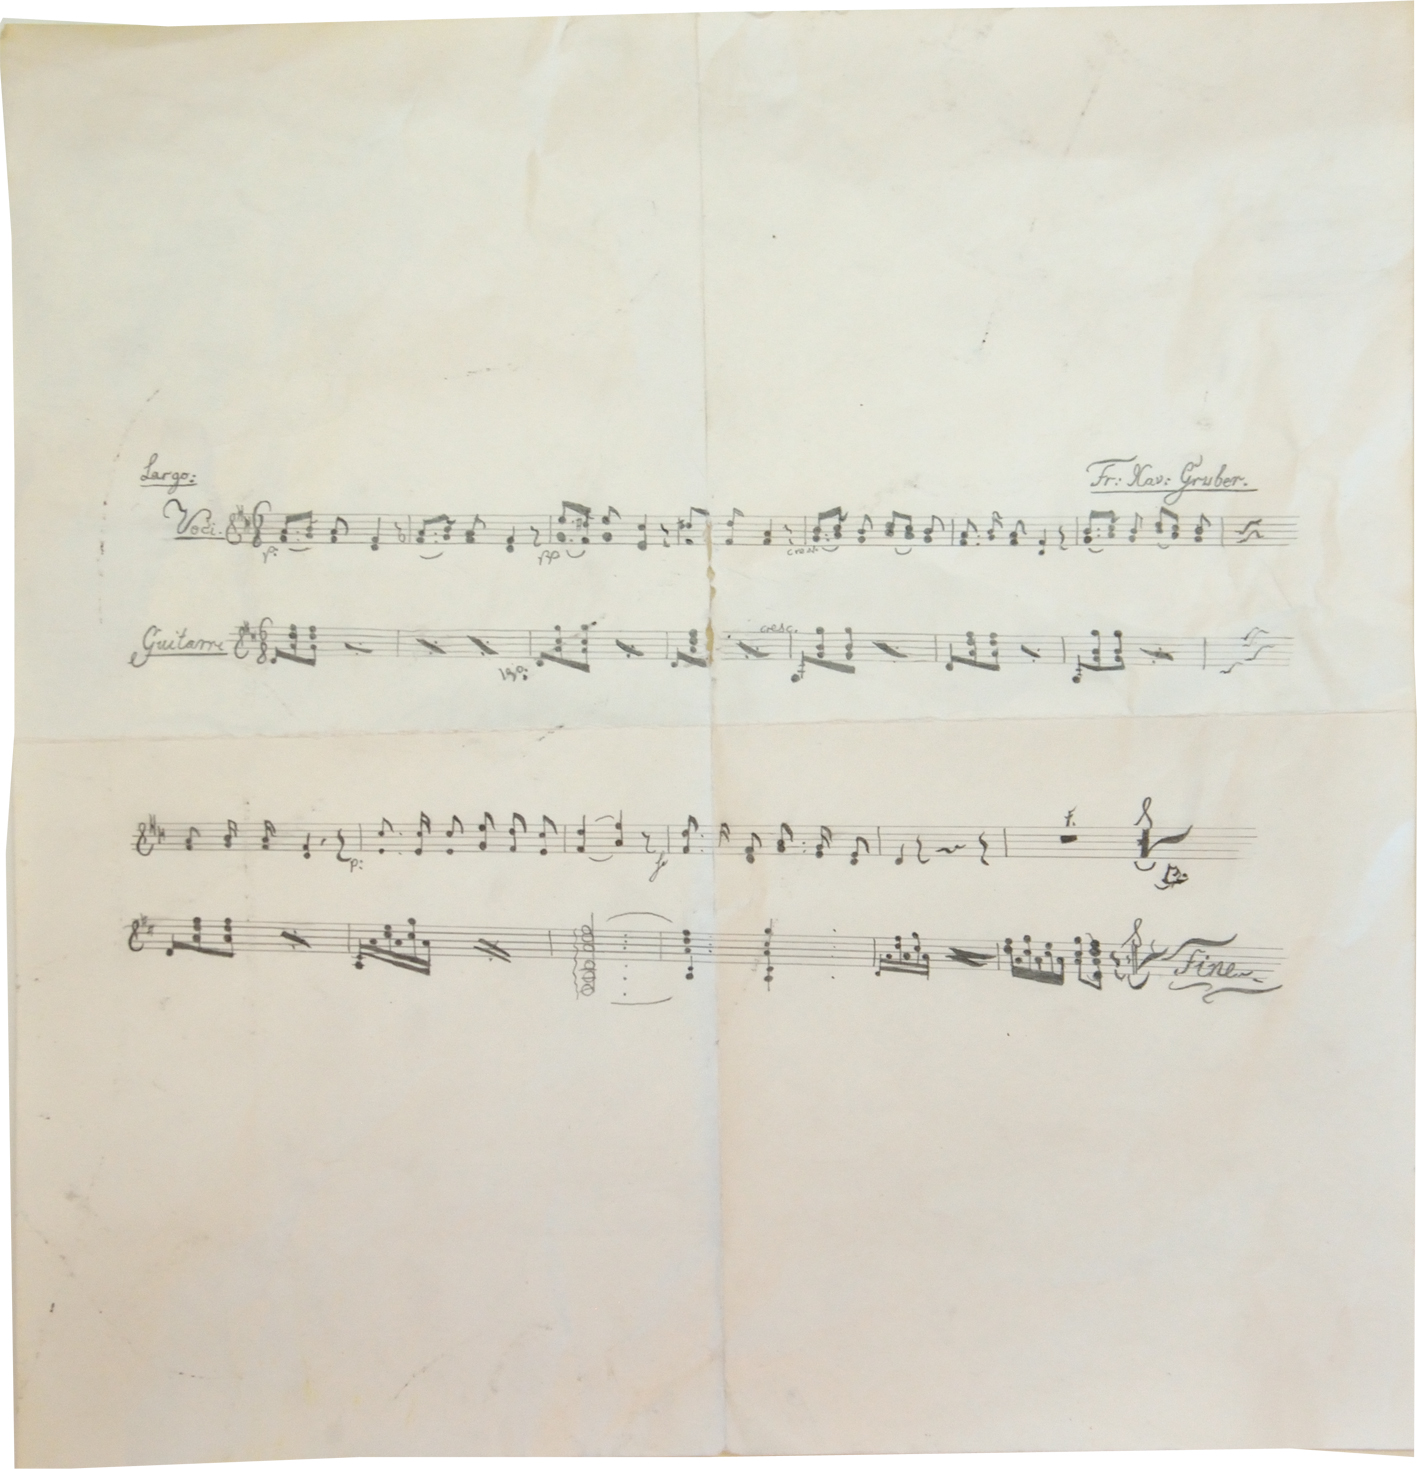 Largo:
Fr: Xav: Gruber.
Voci.
6
8
p:
pp
cresc.
Guitarre
6
8
cresc.
pp:
f.
p:
f
Fine.